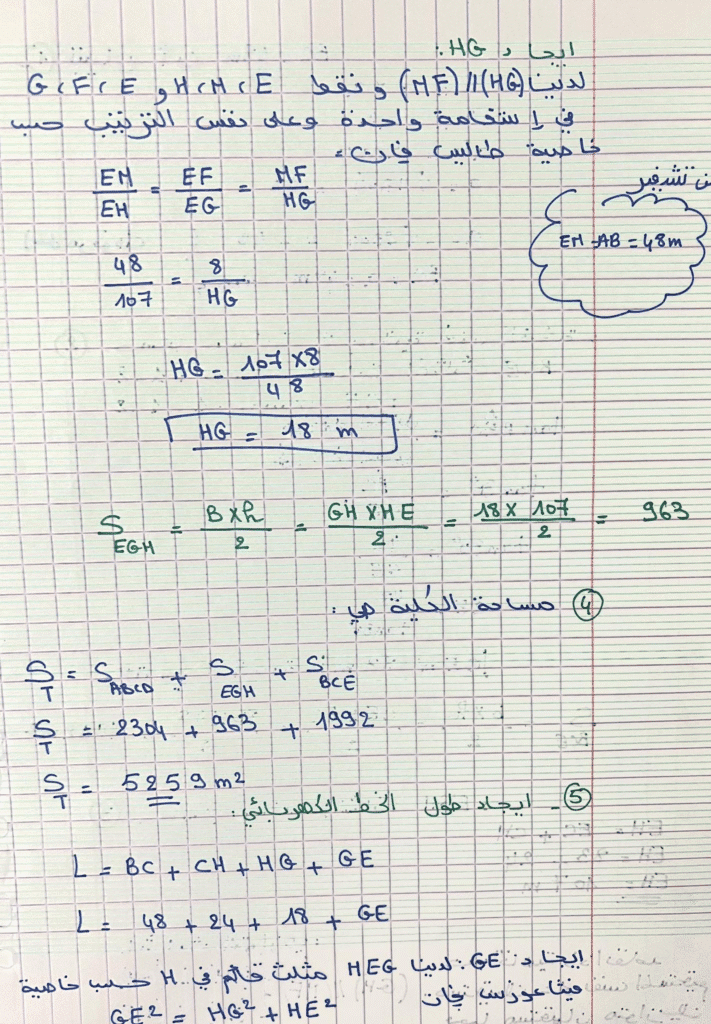 ايجاد HG:
لدينا (MF)//(HG) و نقط E، M، H و E، F، G
في إستقامة واحدة وعلى نفس الترتيب حسب
خاصية طالس فإن:
EM/EH = EF/EG = MF/HG
من تشفير
EM=AB=48m
48/107 = 8/HG
HG = 107×8/48
HG = 18 m
S EGH = B×h/2 = GH×HE/2 = 18×107/2 = 963
④ مساحة الكلية هي:
S T = S ABCD + S EGH + S BCE
S T = 2304 + 963 + 1992
S T = 5259 m²
⑤ - ايجاد طول الخط الكهربائي:
L = BC + CH + HG + GE
L = 48 + 24 + 18 + GE
ايجاد GE: لدينا HEG مثلث قائم في H حسب خاصية
فيتاغورس فإن GE² = HG² + HE²